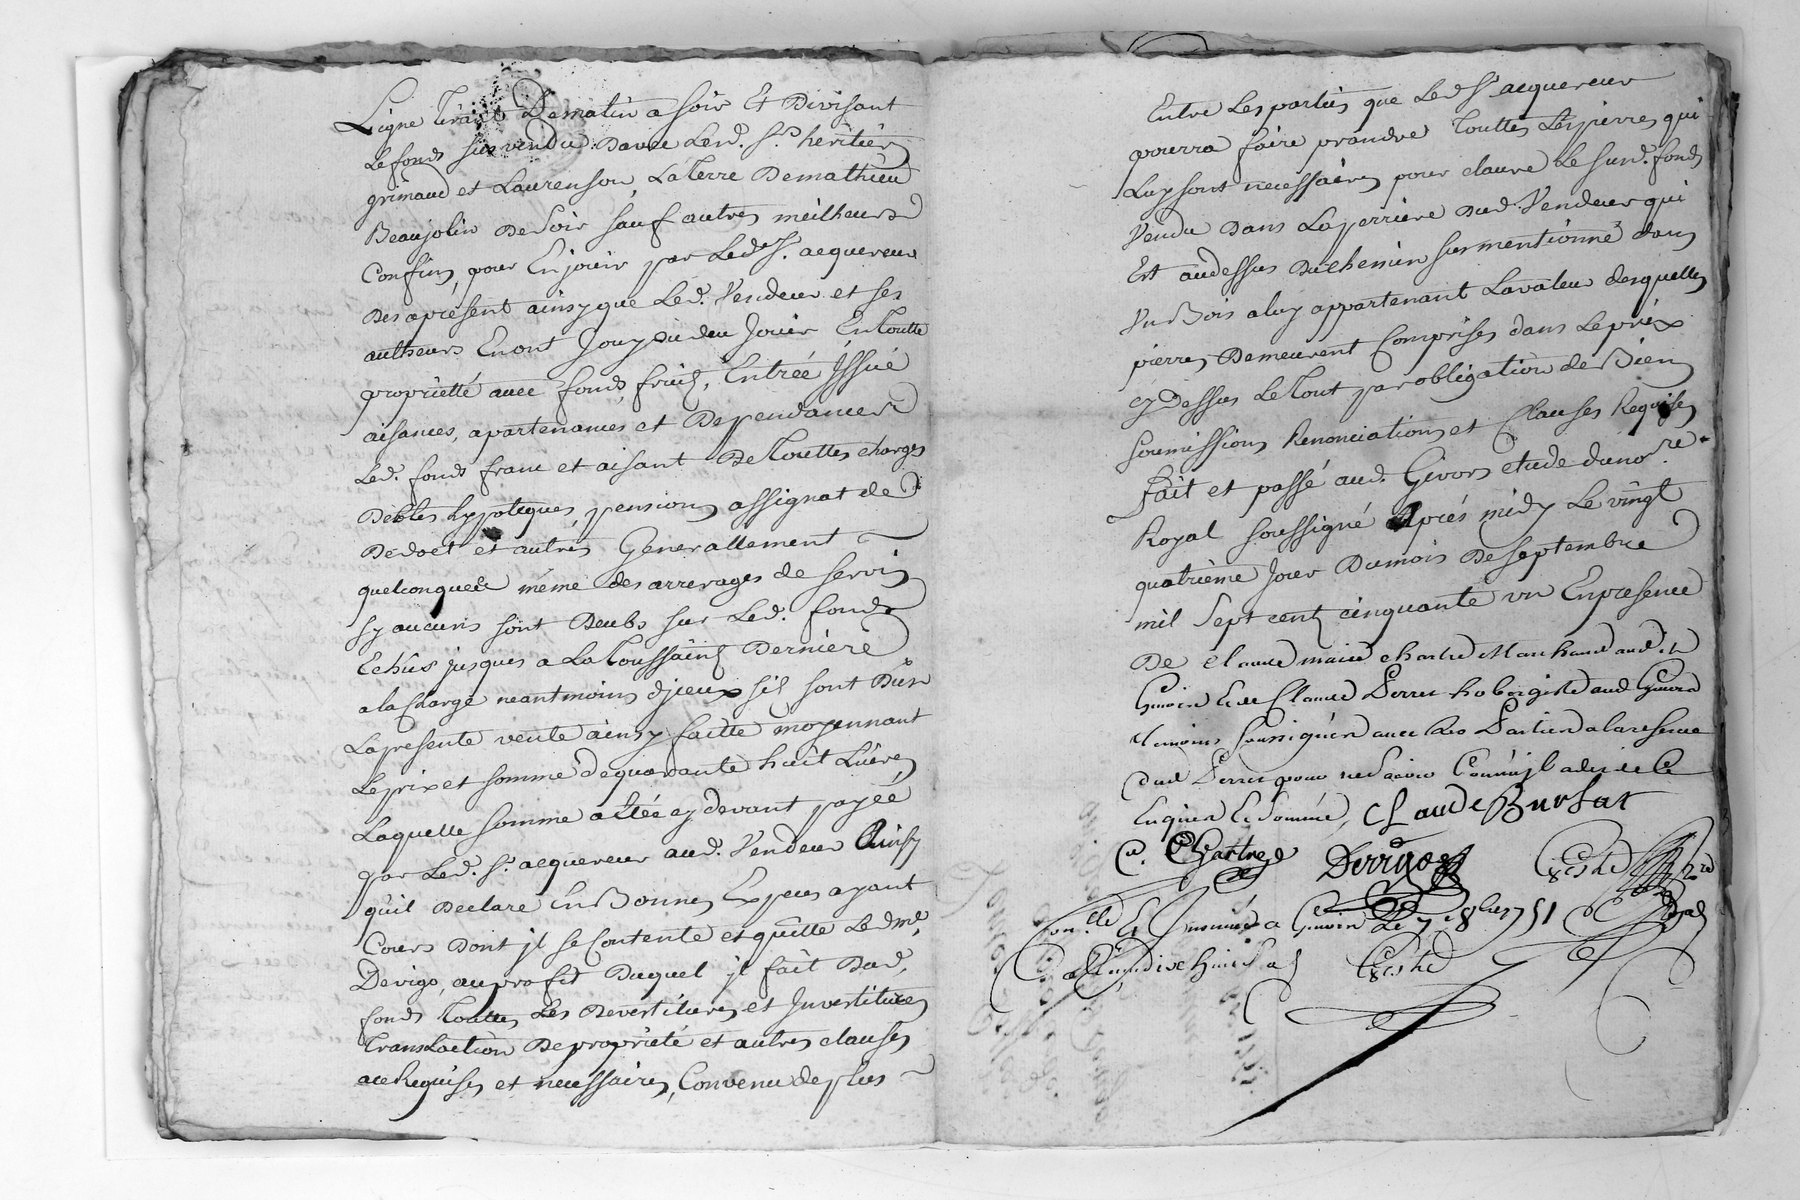 Ligne tirant de matin a soir Et Divisant
Le fonds sus vendu Davec Led. Sr. héritier
grimaud et Laurenson, La Terre De mathieu
Beaujolin De soir sauf autres meilheurs
Confins, pour En jouir par Led. Sr. acquereur
Des apresent ainsy que Led. Vendeur et ses
autheurs En ont Jouy ou deu Jouir En toutte
proprietté avec fonds, fruits, Entrée Jssuë
aisances, apartenances et Dependances
Led. fonds franc et aisant De touttes charges
Debtes hypoteques, pensions, assignat de
De doet et autres Generallement
quelconques même des arrerages de servis
sy aucuns sont Deubs sur Led. fonds
Echûs jusques a La toussaints Derniere
a la charge neantmoins djceux sil sont Dûs
La presente vente ainsy faitte moyennant
Le prix et somme de quarante huit Livres
Laquelle somme a êtée cy devant payée
par Led. Sr. acquereur aud. Vendeur Ainsy
qu'il Declare En Bonnes Especes ayant
Cours Dont jl se Contente et quitte Led. me.
Derigo, au profit Duquel jl fait Dud.
fonds touttes Les Devestitures et Jnvestitures
translaction De propriété et autres clauses
ace Requises et necessaires, Convenu de plus
Entre Les parties que Led. Sr. acquereur
pourra faire prandre touttes Les pierres qui
Luy sont necessaires pour claure Le susd. fonds
Vendu Dans La perriere Dud. Vendeur qui
Est audessus Du chemin sus mentionné dans
Un Bois a luy appartenant La valeur desquelles
pierres Demeurent Comprises dans Le prix
cy Dessus Le tout par obligation de Biens
soumissions Renonciations et Clauses Requises
fait et passé aud. Givors etude du nore.
Royal soussigné Après midy Le vingt
quatrième Jour Du mois De septembre
mil Sept cents cinquante un En presence
De claude marie chartre Marchand aud.
Givors Et de Claude Perret hobergiste aud Givors
temoins soussignés avec Les Parties a la reserve
dud Perret pour ne Savoir
Enquis Et Sommé, CLaude Bursat
C. Chartre Derrigo
a Givors Le 7e 8bre 1751